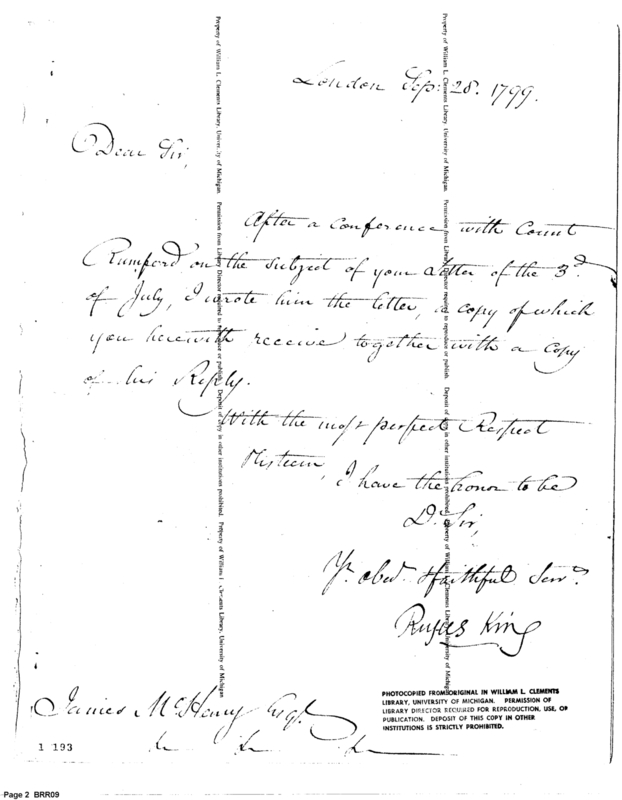 London Sep: 28. 1799.
Dear Sir,
After a conference with Count
Rumford on the subject of your Letter of the 3d.
of July, I wrote him the letter, a copy of which
you herewith receive together with a copy
of his Reply.
With the most perfect Respect
& Esteem, I have the honor to be
Dr. Sir,
Yr. obed. & faithful Servt.
Rufus King
James McHenry Esqr.
&c &c &c
1 193
PHOTOCOPIED FROM ORIGINAL IN WILLIAM L. CLEMENTS
LIBRARY, UNIVERSITY OF MICHIGAN. PERMISSION OF
LIBRARY DIRECTOR REQUIRED FOR REPRODUCTION, USE, OR
PUBLICATION. DEPOSIT OF THIS COPY IN OTHER
INSTITUTIONS IS STRICTLY PROHIBITED.
Property of William L. Clements Library, University of Michigan. Permission from Library Director required to reproduce or publish. Deposit of copy in other institutions prohibited. Property of William L. Clements Library, University of Michigan
Property of William L. Clements Library, University of Michigan. Permission from Library Director required to reproduce or publish. Deposit of copy in other institutions prohibited. Property of William L. Clements Library, University of Michigan
Page 2 BRR09